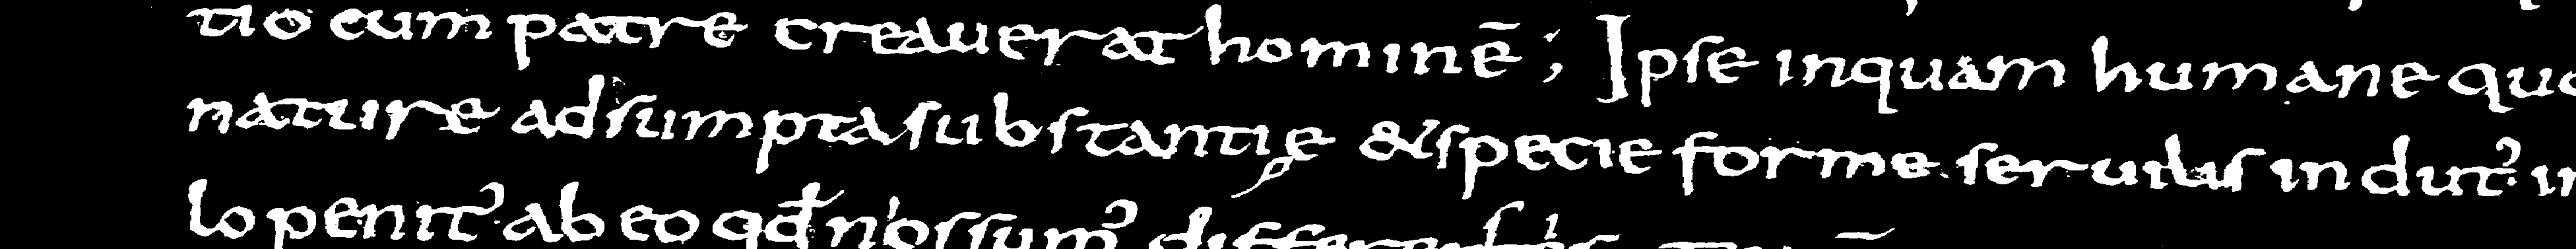 tio cum patre creauerat hominē; Ipse inquam humane quo
nature adsumpta substantię & specie forme seruilis indut᾿ in
lo penit᾿ ab eo qđ nos sum᾿